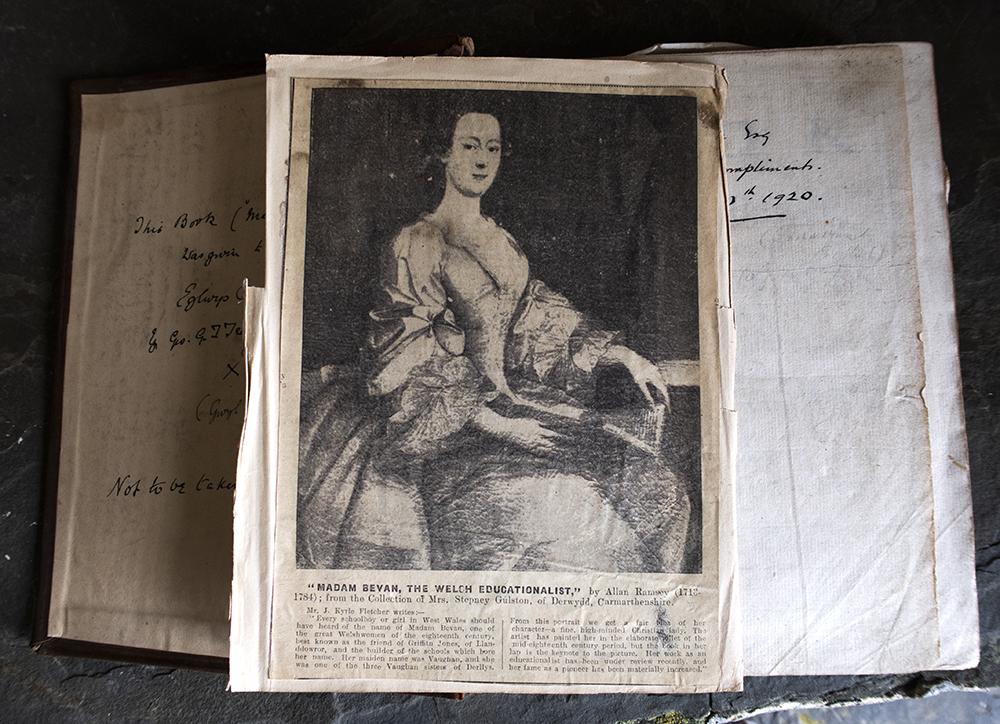 This Book (
Was given
Eglwys
& Geo. G. T.
X
Not to be
Esq
mpliments.
th 1920.
"MADAM BEVAN, THE WELCH EDUCATIONALIST," by Allan Ramsey (1713-
1784); from the Collection of Mrs. Stepney Gulston, of Derwydd, Carmarthenshire.
Mr. J. Kyrle Fletcher writes:—
"Every schoolboy or girl in West Wales should
have heard of the name of Madam Bevan, one of
the great Welshwomen of the eighteenth century,
best known as the friend of Griffith Jones, of Llan-
ddowror, and the builder of the schools which bear
her name. Her maiden name was Vaughan, and she
was one of the three Vaughan sisters of Derllys.
From this portrait we get a fair idea of her
character—a fine, high-minded Christian lady. The
artist has painted her in the elaborate toilet of the
mid-eighteenth century period, but the book in her
lap is the keynote to the picture. Her work as an
educationalist has been under review recently, and
her fame as a pioneer has been materially increased."